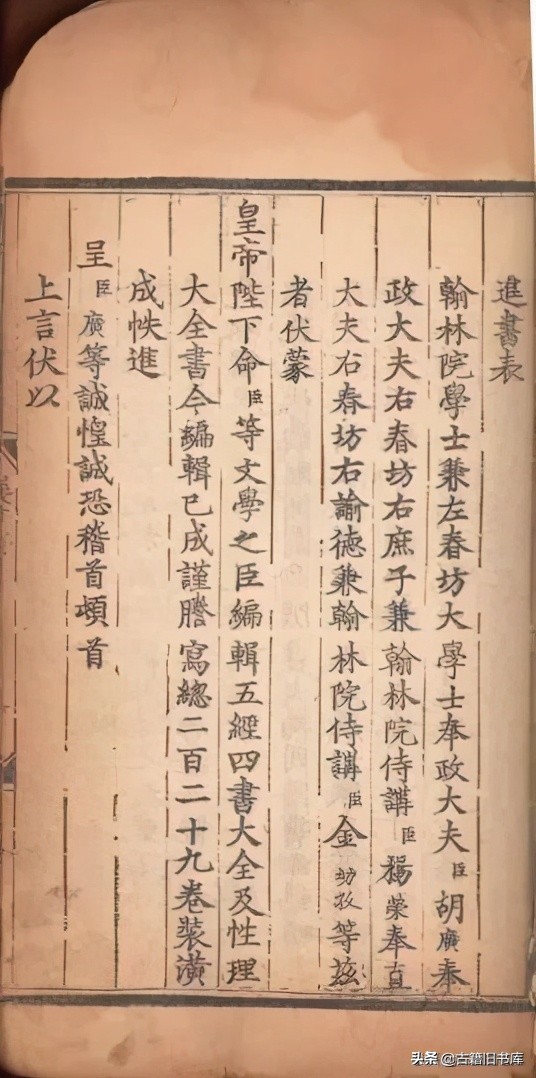 進書表
翰林院學士兼左春坊大學士奉政大夫臣胡廣奉
政大夫右春坊右庶子兼翰林院侍講臣楊榮奉直
大夫右春坊右諭德兼翰林院侍講臣金幼孜等茲
者伏蒙
皇帝陛下命臣等文學之臣編輯五經四書大全及性理
大全書今編輯已成謹謄寫總二百二十九卷裝潢
成帙進
呈臣廣等誠惶誠恐稽首頓首
上言伏以
头条 @古籍旧书库